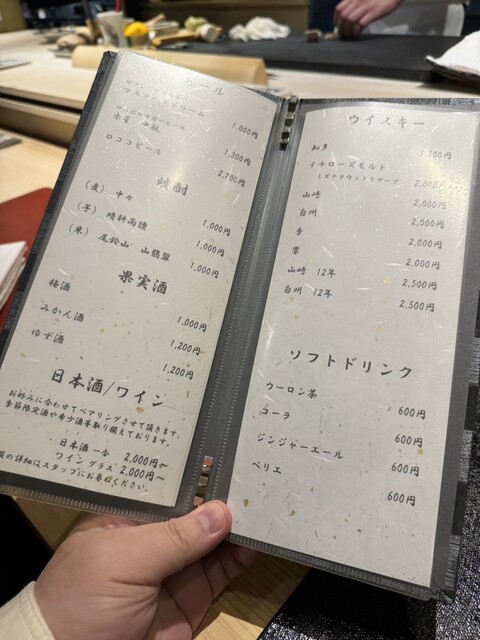 ール
1,000円
1,300円
ロココビール
2,700円
焼酎
(麦) 中々
1,000円
(芋) 晴耕雨読
1,000円
(米) 尾鈴山 山翡翠
1,000円
果実酒
梅酒
1,000円
みかん酒
1,200円
ゆず酒
1,200円
日本酒/ワイン
お好みに合わせてペアリングさせて頂きます。
季節限定酒や希少酒等取り揃えております。
日本酒 一合 2,000円〜
ワイン グラス 2,000円〜
の詳細はスタッフにお尋ねください。
ウイスキー
知多 1,500円
イチローズモルト
(ミズナラウッドリザーブ 2,000円
山崎 2,000円
白州 2,000円
季 2,000円
響 2,000円
山崎 12年 2,500円
白州 12年 2,500円
ソフトドリンク
ウーロン茶 600円
コーラ 600円
ジンジャーエール 600円
ペリエ 600円